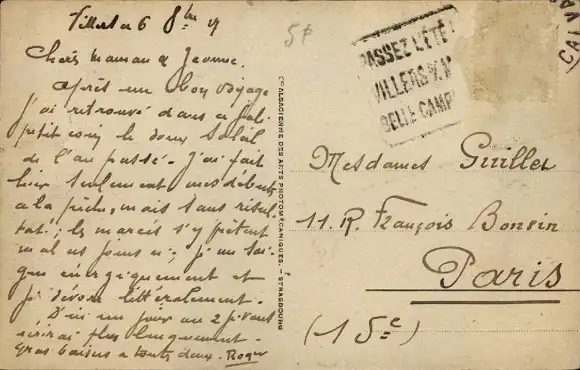 Villers le 6 8bre
Chère Maman & Jeanne.
Après un bon voyage
j'ai retrouvé dans ce joli
petit coin le doux soleil
de l'an passé. J'ai fait
hier seulement mes débuts
à la pêche, mais sans résul-
tat; les marées s'y prêtent
mal ces jours ci; je me soi-
gne énergiquement et
je dévore littéralement.
D'ici un jour ou 2 je vous
écrirai plus longuement.
Gros baisers à toutes deux. Roger
5F
PASSEZ L'ÉTÉ
VILLERS S/ M
BELLE CAMP
CALVA
Cie ALSACIENNE DES ARTS PHOTOMÉCANIQUES. - STRASBOURG
Mesdames Guillet
11. R. François Bonvin
Paris
(15e)